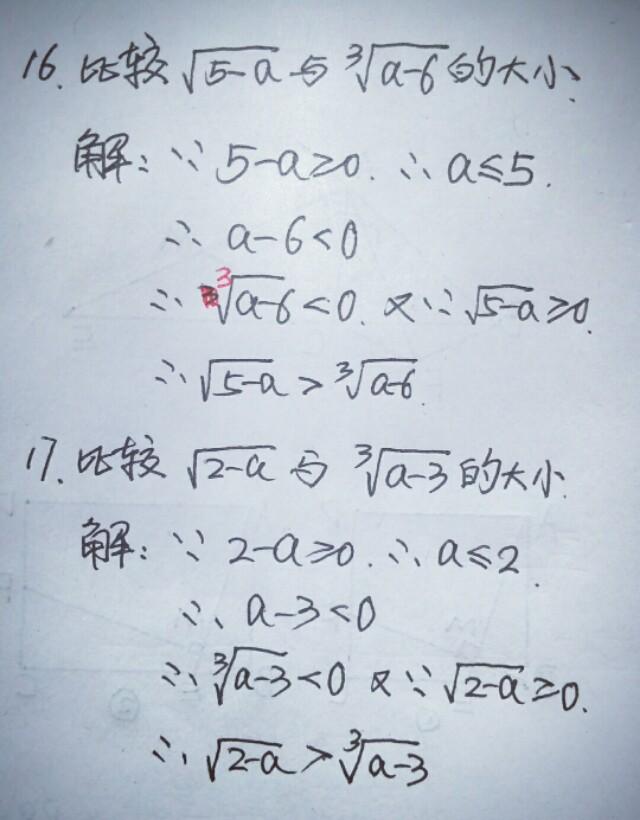 16. 比较 √(5-a) 与 ³√(a-6) 的大小.
解: ∵ 5-a≥0. ∴ a≤5.
∴ a-6<0
∴ ³√(a-6)<0. 又∵ √(5-a)≥0.
∴ √(5-a) > ³√(a-6).
17. 比较 √(2-a) 与 ³√(a-3) 的大小.
解: ∵ 2-a≥0. ∴ a≤2.
∴ a-3<0
∴ ³√(a-3)<0 又∵ √(2-a)≥0.
∴ √(2-a) > ³√(a-3)